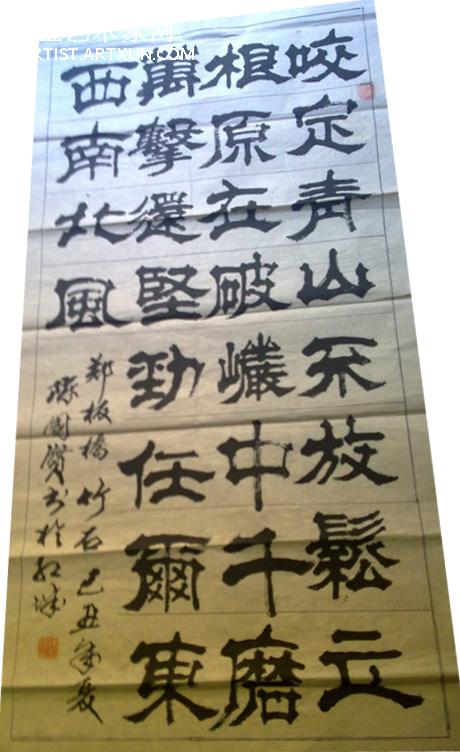 艺术家网
ARTIST.ARTXUN.COM
咬定青山不放鬆立
根原在破巗中千磨
萬擊還堅勁任爾東
西南北風
郑板橋竹石己丑年夏
國賢书於